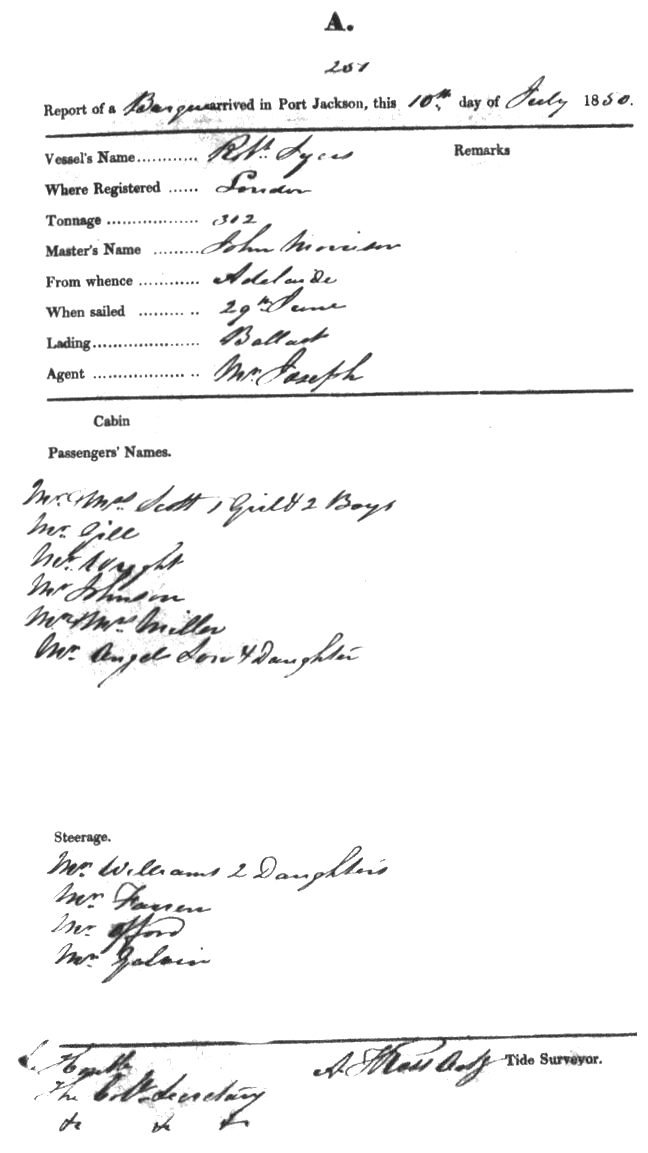 A.
251
Report of a Barque arrived in Port Jackson, this 10th day of July 1850.
Vessel's Name............ Robt. Syers Remarks
Where Registered ...... London
Tonnage .................. 302
Master's Name ......... John Morrison
From whence ............ Adelaide
When sailed ......... .. 29th June
Lading..................... Ballast
Agent .................. .. Mr. Joseph
Cabin
Passengers' Names.
Mr. & Mrs Scott 1 Girl & 2 Boys
Mr. Gill
Mr. Wright
Mr Johnson
Mr & Mrs Miller
Mr. Angel Son & Daughter
Steerage.
Mr. Williams 2 Daughters
Mr.
Mr. Offord
Mr. Galvin
Honble
The Col. Secretary
&c &c &c
A. Ross Tide Surveyor.